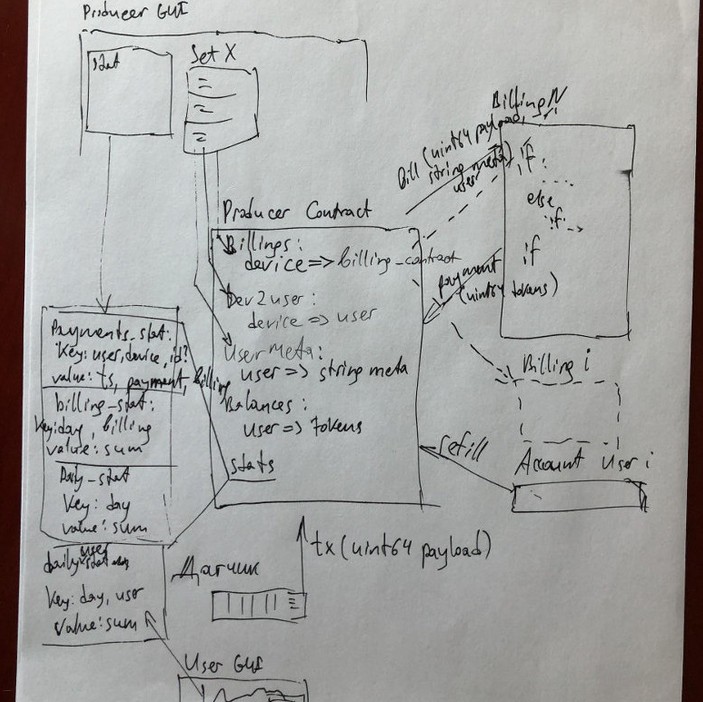 Producer GUI
stat
Set X
Billing N
Bill (uint64 payload,
string meta)
user
if
else
if
if
Producer Contract
Billings:
device => billing_contract
Dev2user:
device => user
User Meta:
user => string meta
Balances:
user => tokens
stats
payment
(uint64 tokens)
Payments_stat:
Key: user, device, id?
value: ts, payment, billing
billing_stat:
Key: day, billing
value: sum
Daily_stat
Key: day
value: sum
user
daily stat
Key: day, user
value: sum
Billing i
Account User i
refill
tx (uint64 payload)
Датчик
User GUI